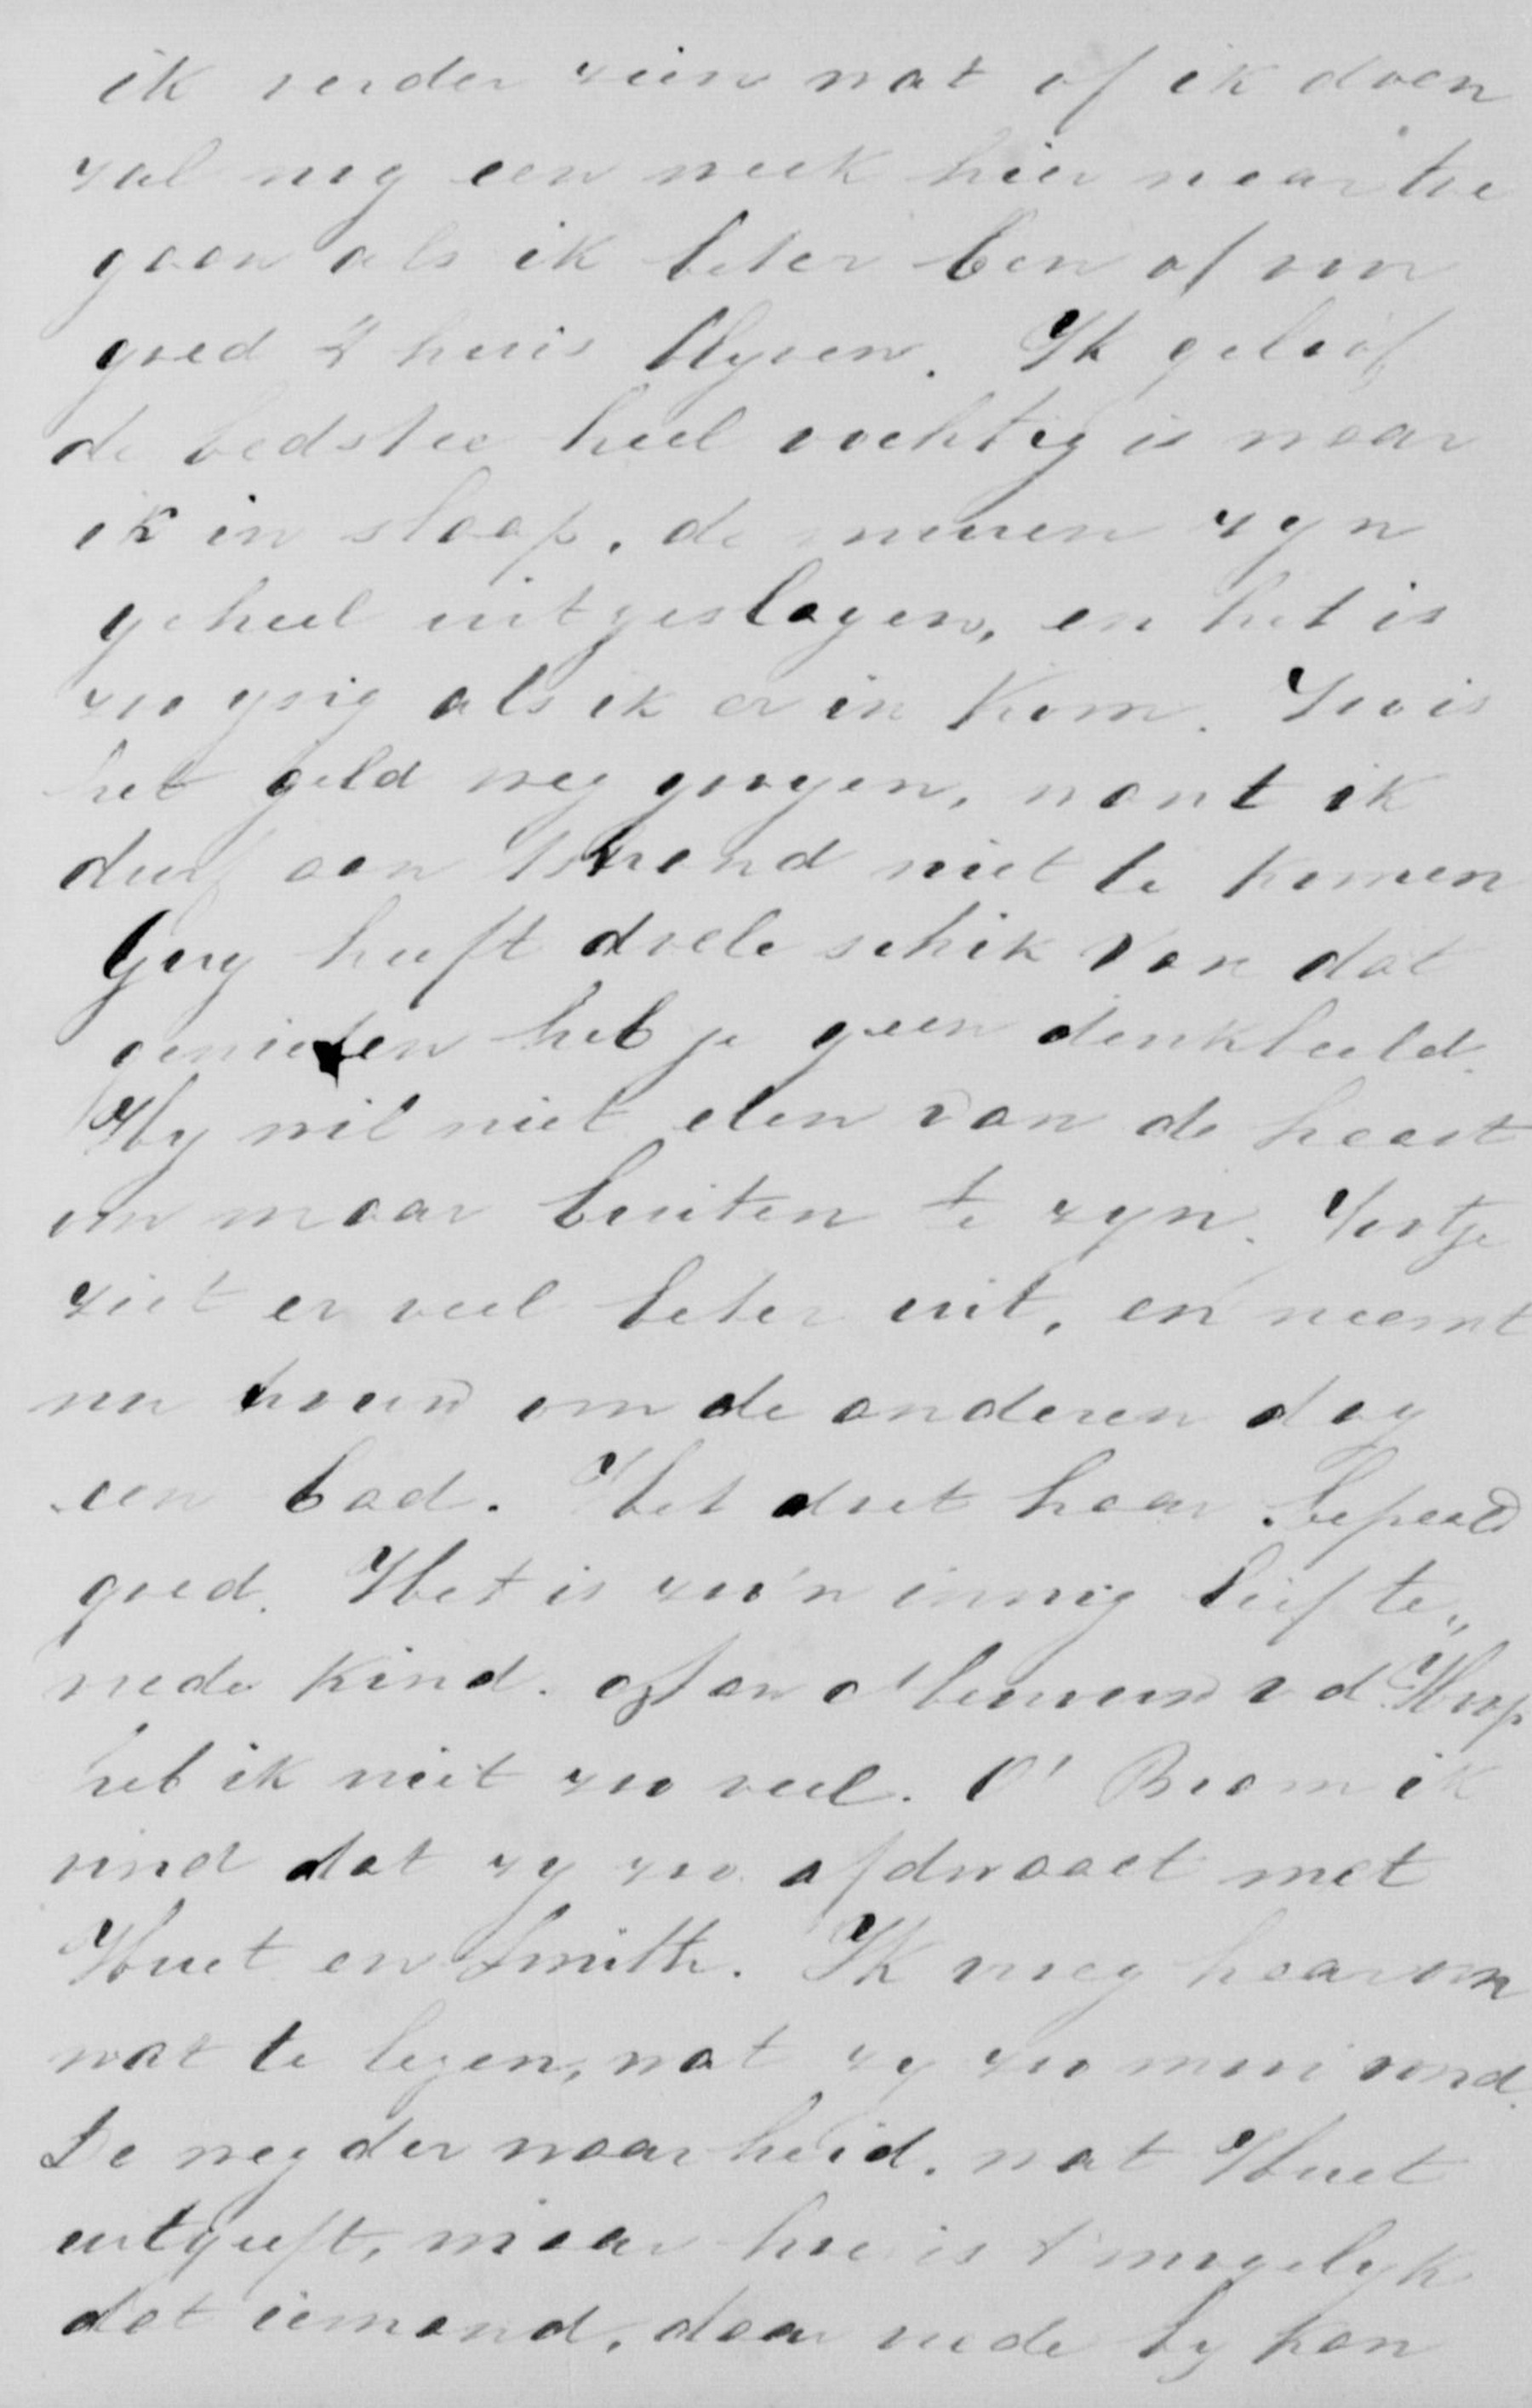 ik verder zien wat of ik doen
zal nog een week hier naar toe
gaan als ik beter ben of voor
goed t huis blyven. Ik geloof
de bedstee heel vochtig is waar
ik in slaap, de muren zyn
geheel uitgeslagen, en het is
zoo ysig als ik er in kom. Zoo is
het geld weg gooyen, want ik
durf aan strand niet te komen
Guy heeft dolle schik van dat
genieten heb je geen denkbeeld.
Hy wil niet eten van de haast
om maar buiten te zyn. Jootje
ziet er veel beter uit, en neemt
nu trouw om de anderen dag
een bad. Het doet haar bepaald
goed. Het is zoo'n innig lief te„
vrede kind. v d Hoop
heb ik niet zoo veel. O' Bram ik
vind dat zy zoo afdwaalt met
Huet en Smith. Ik vroeg haar om
wat te lezen, wat zy zoo mooi vond.
De weg der waarheid. wat Huet
uitgeeft, maar hoe is t mogelyk
dat iemand, daar vrede by kan